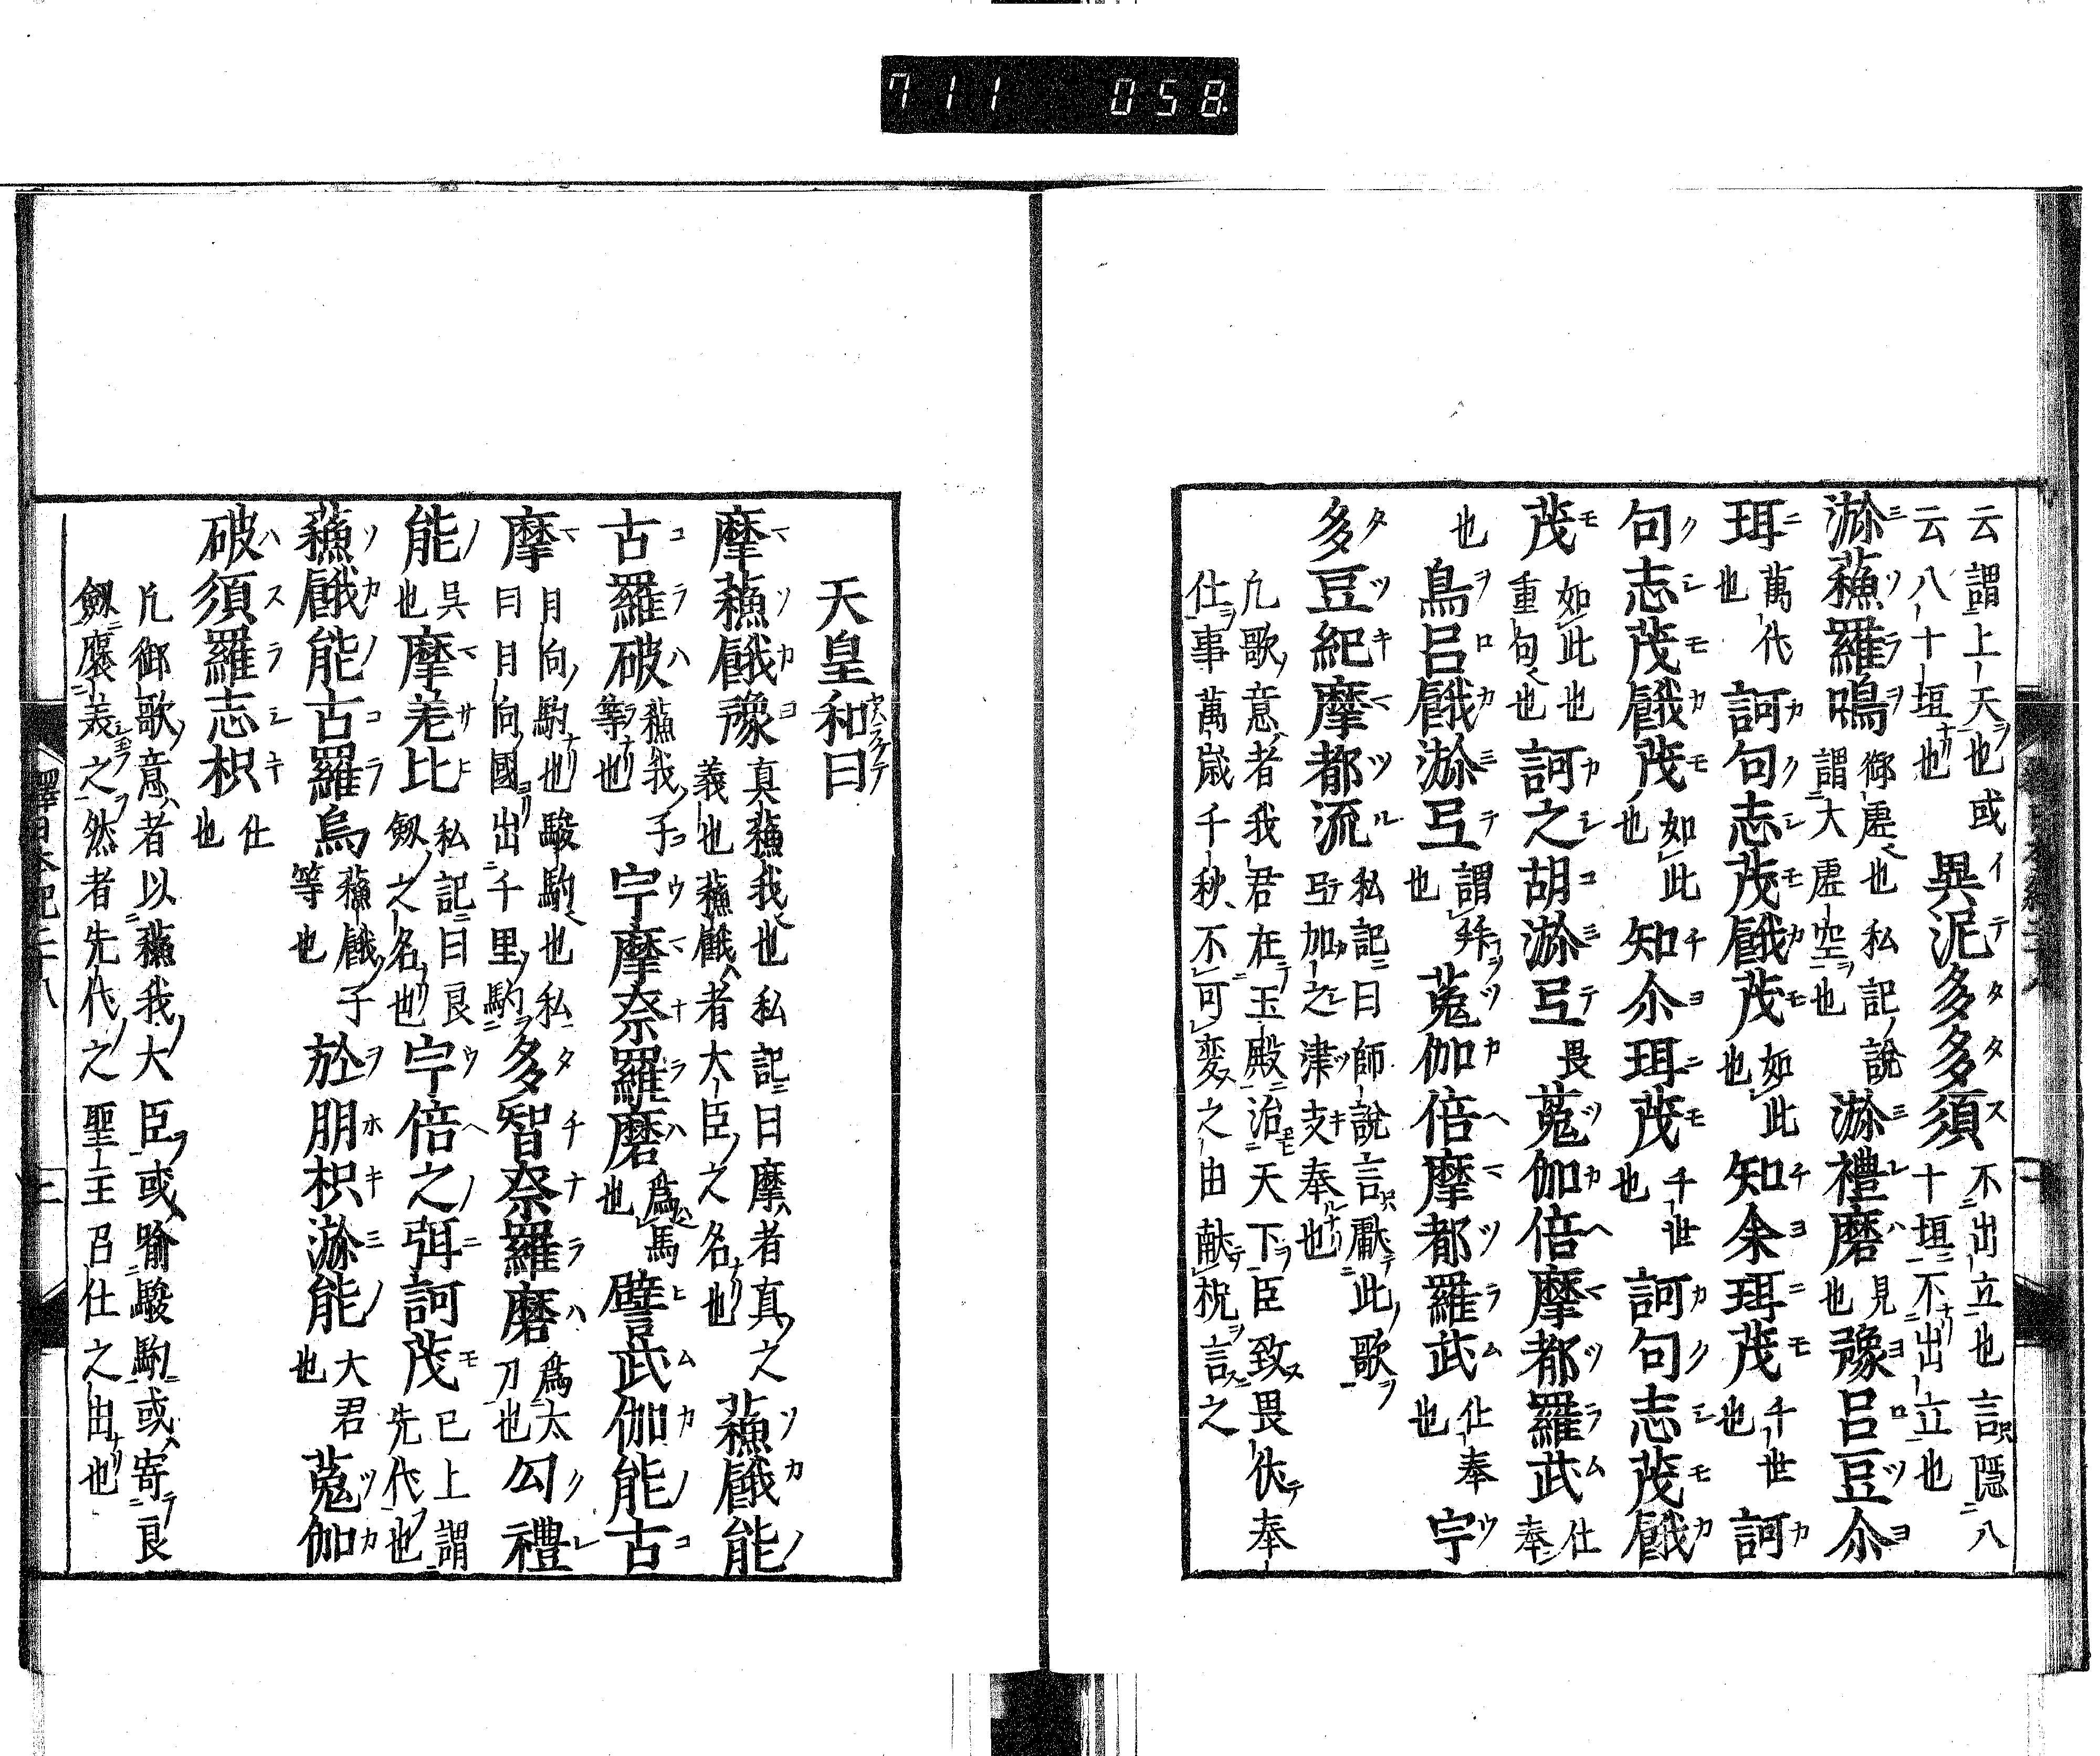 711 058
云謂上天也或
云八十垣也
異泥多多須
不出立也言隠八
十垣不出立也
瀰蘓羅鳴
御虚也私記説
謂大虚空也
瀰禮磨
見
也
豫呂豆尒
珥
萬代
也
訶句志茂餓茂
如此
也
知余珥茂
千世
也
訶
句志茂餓茂
如此
也
知尒珥茂
千世
也
訶句志茂餓
茂
如此也
重句也
訶之胡瀰弖
畏
菟伽倍摩都羅武
仕
奉
也
烏呂餓瀰弖
謂拜
也
菟伽倍摩都羅武
仕奉
也
宇
多豆紀摩都流
私記曰師説言獻此歌
弖加之津支奉也
凢歌意者我君在玉殿治天下臣致畏伏奉
仕事萬歳千秋不可変之由獻祝言之
天皇和曰
摩蘓餓豫
真蘓我也私記曰摩者真之
義也蘓餓者大臣之名也
蘓餓能
古羅破
蘓我子
等也
宇摩奈羅磨
為馬
也
譬武伽能古
摩
日向駒也駿駒也私
日日向國出千里駒
多智奈羅磨
為太
刀也
勾禮
能
呉
也
摩差比
私記曰良
劔之名也
宇倍之弭訶茂
已上謂
先代也
蘓餓能古羅烏
蘓餓子
等也
於朋枳瀰能
大君
也
菟伽
破須羅志枳
仕
也
凢御歌意者以蘓我大臣或喩駿駒或寄良
劔褒美之然者先代之聖主召仕之出也
釋日本紀二十八